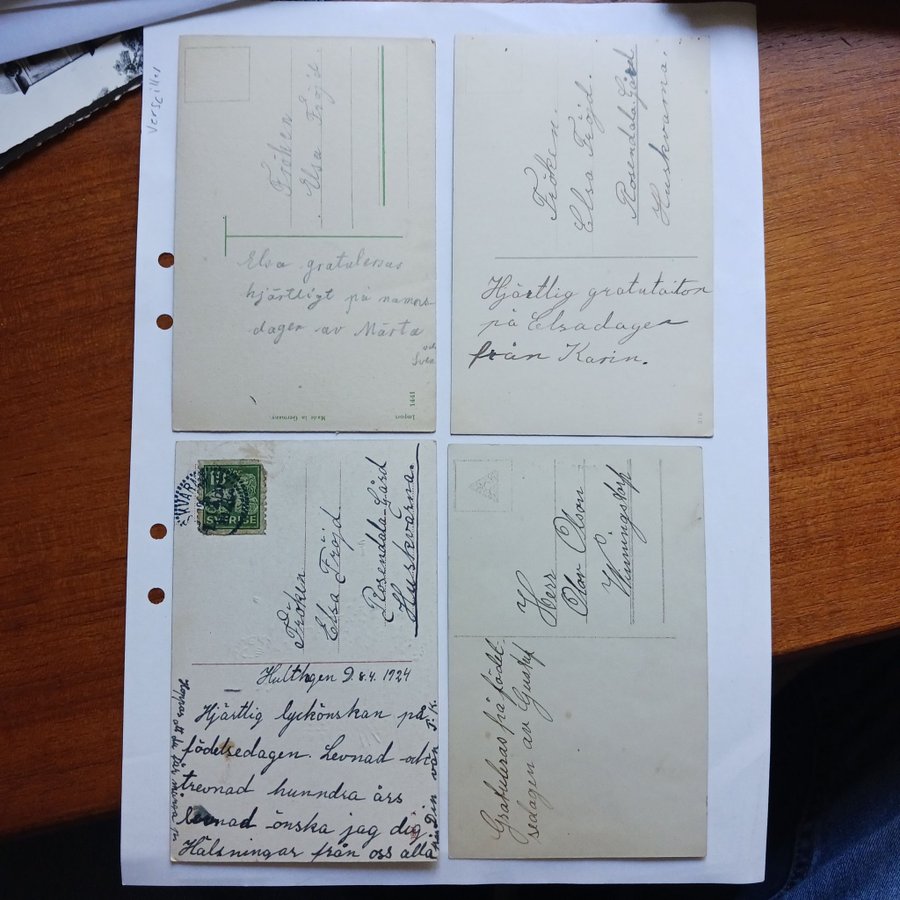 Verseilles
Fröken
Elsa Fröjd
Elsa gratuleras
hjärtligt på namns-
dagen av Märta
och
Sven
Import
Made in Germany
1441
Fröken
Elsa Fröjd.
Rosendala Gård
Huskvarna.
Hjärtlig gratulation
på Elsadagen
från Karin.
KVAR
SVERIGE
Fröken
Elsa Fröjd
Rosendala Gård
Huskvarna.
D. 8.4. 1924
Hjärtlig lyckönskan på
födelsedagen. Levnad och
trevnad hunndra års
levnad önska jag dig
Hälsningar från oss alla
Hoppas att du får många
Din vän
Herr
Olov Olson
Gratuleras på födel-
sedagen av Gustaf